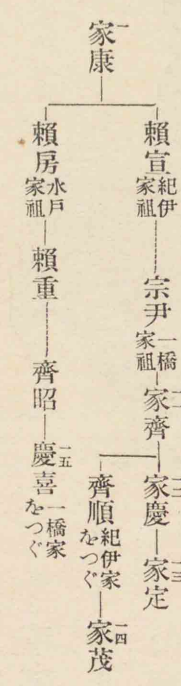 一
家康
賴宣 紀伊家祖
宗尹 一橋家祖
一一
家齊
一二
家慶
一三
家定
齊順 紀伊家をつぐ
一四
家茂
賴房 水戶家祖
賴重
齊昭
一五
慶喜 一橋家をつぐ